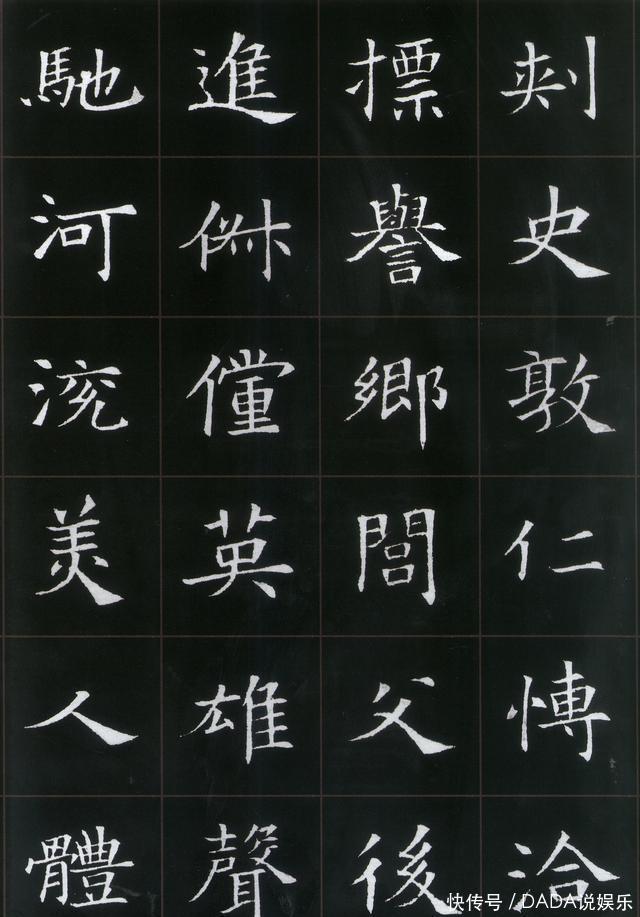 刾史敦仁愽洽
標譽鄉閭父後
進俶儻英雄聲
馳河渷美人體
快传号/DADA说娱乐